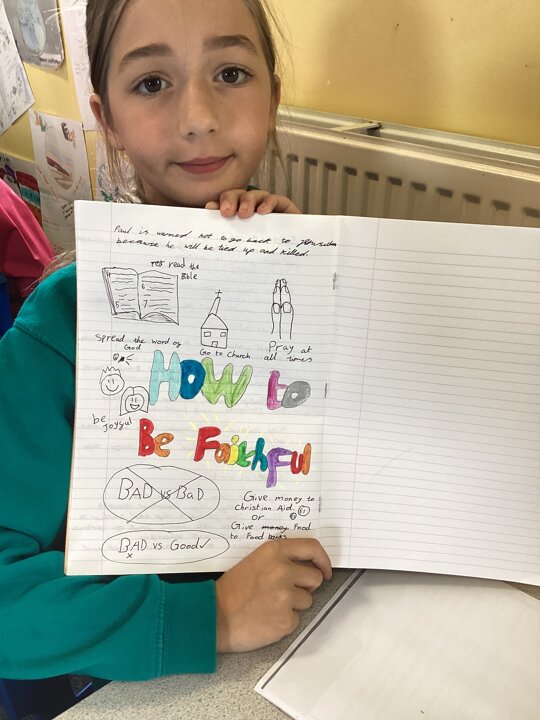 Paul is warned not to go back to Jerusalem
because he will be tied up and killed.
read the
Bible
4
5
6
7
spread the word of
God
Go to church
Pray at
all times
How to
be
joyful
Be Faithful
BAD vs BaD
Give money to
Christian Aid.
or
Give money Food
to Food banks
BAD vs Good✓
x